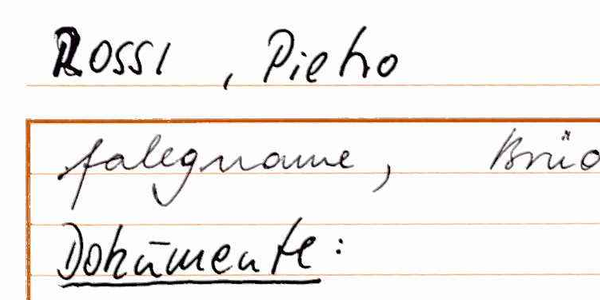 Rossi, Pietro
falegname, Brüd
Dokumente: